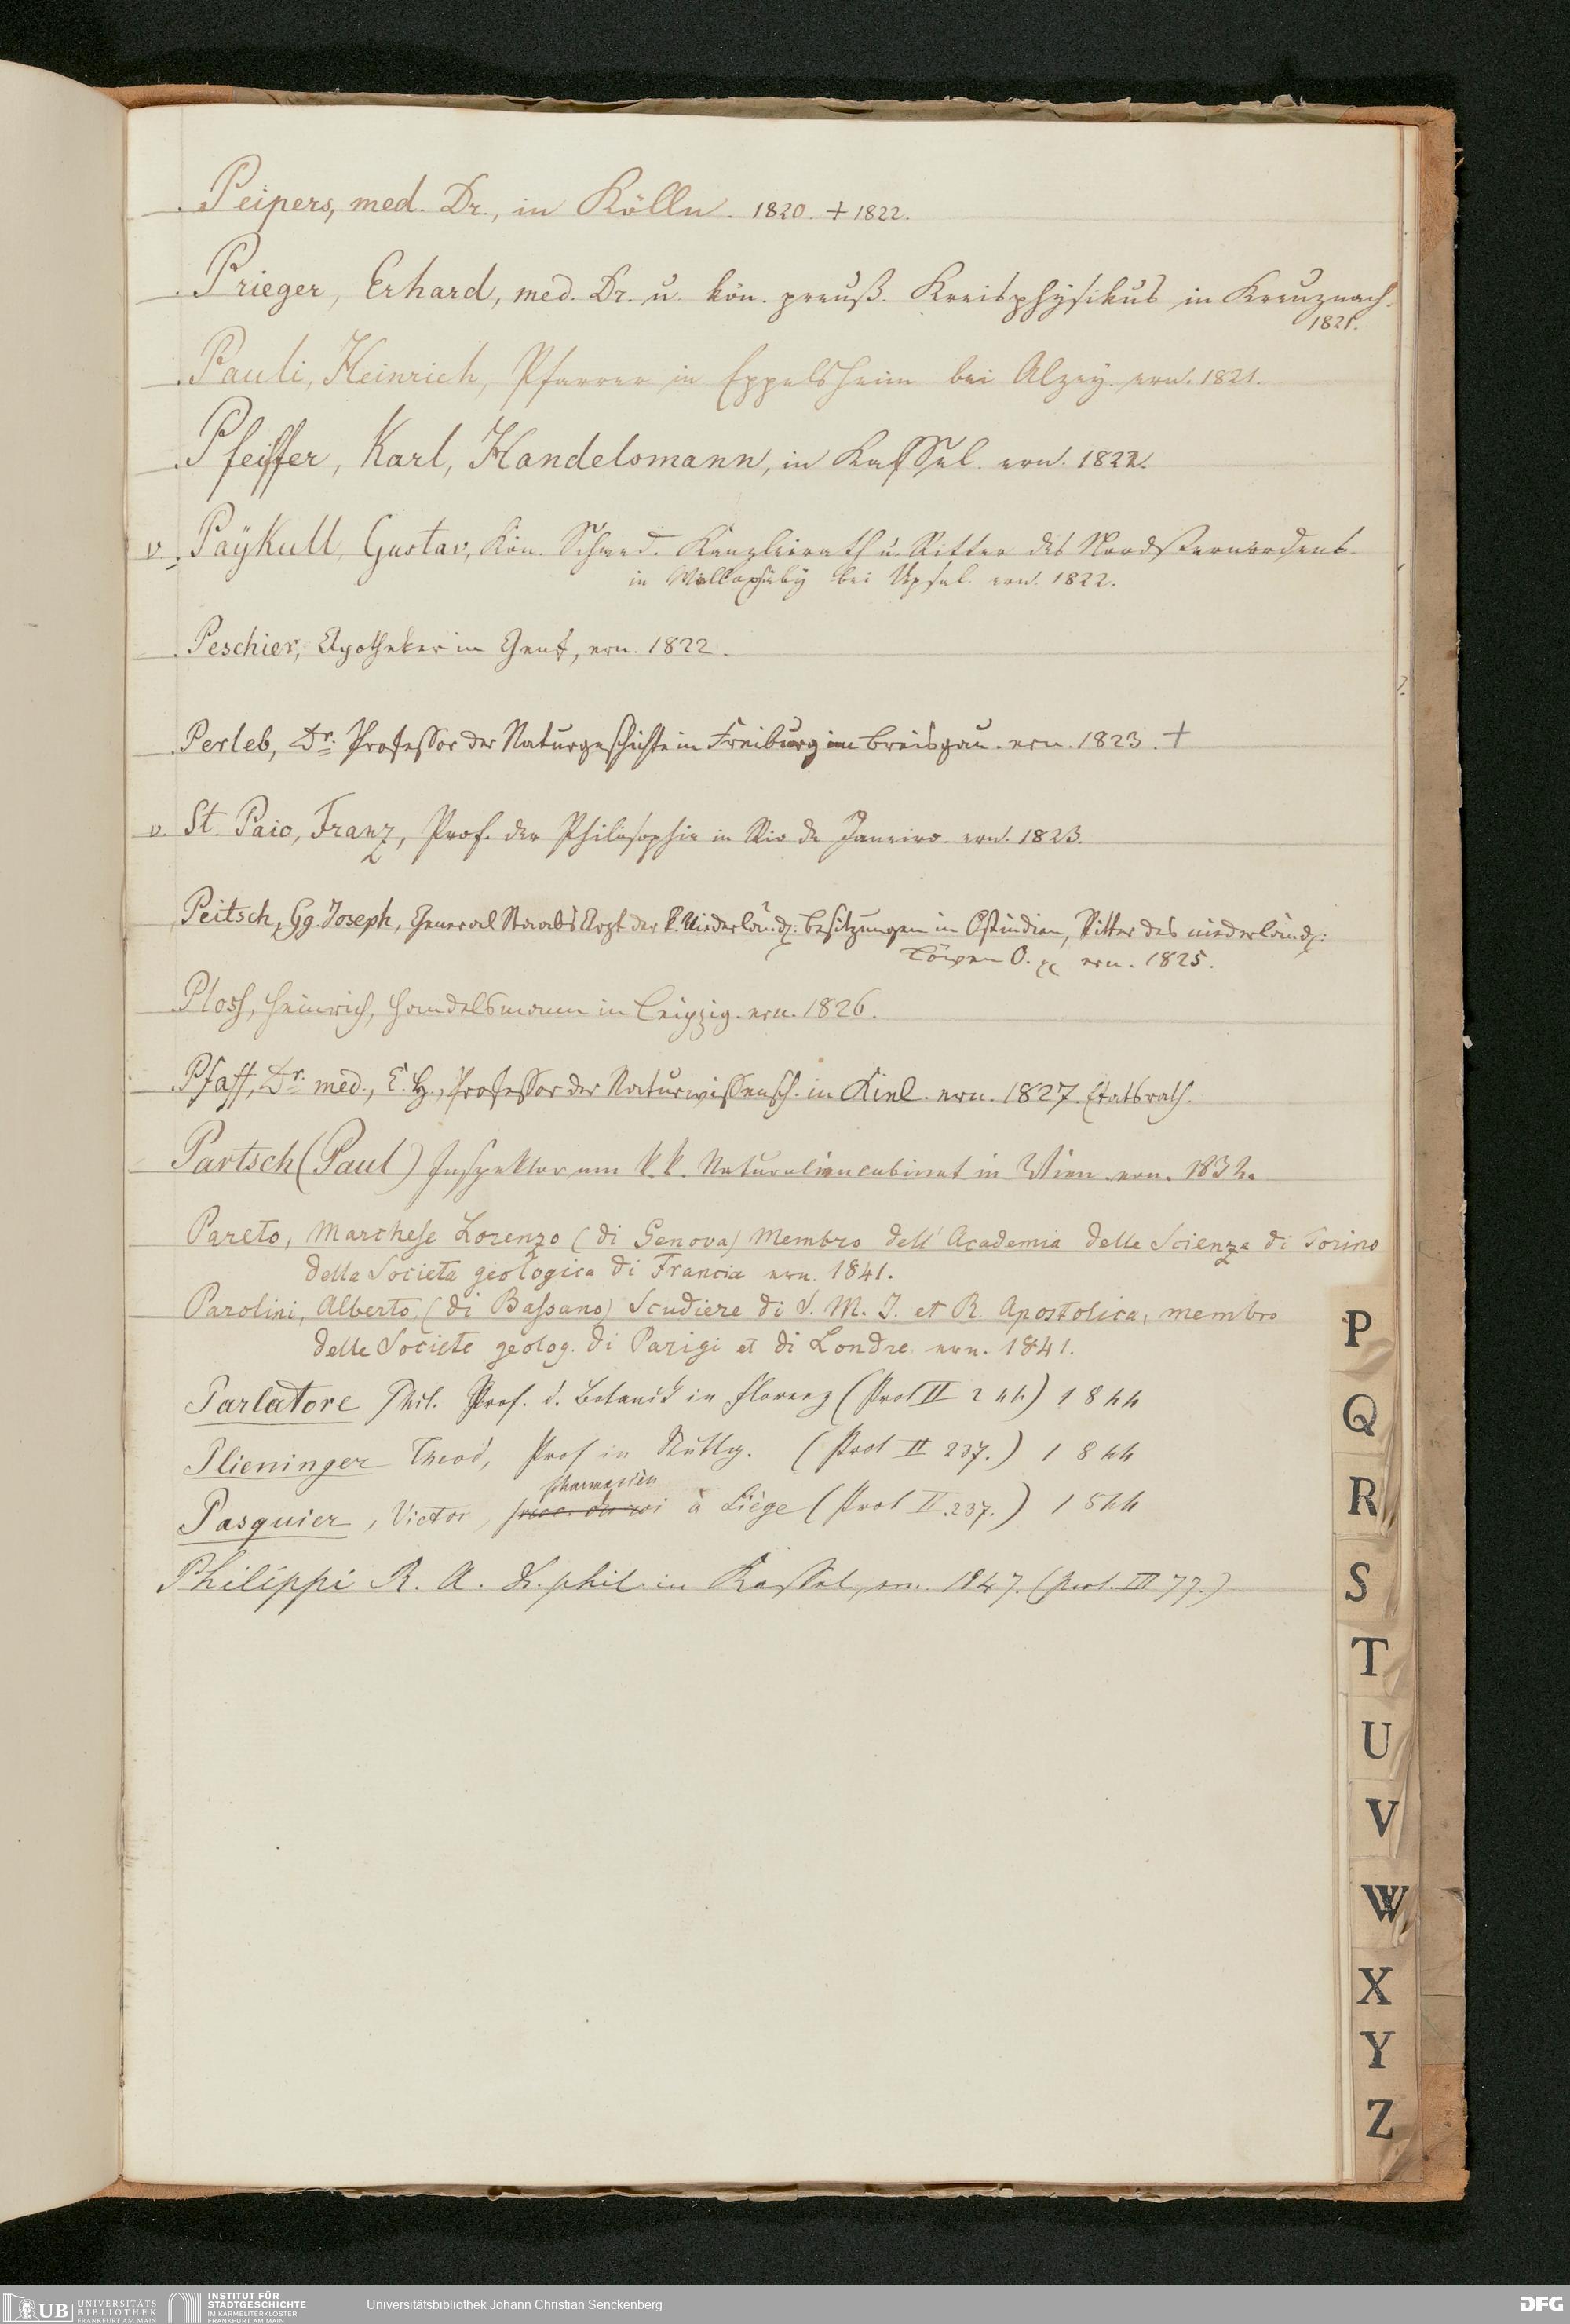 Peipers, med. Dr., in Kölln. 1820. + 1822.
Prieger, Erhard, med. Dr. u. kön. preuß. Kreisphÿsikus in Kreuznach.
1821.
Pauli, Heinrich, Pfarrer in Eppelsheim bei Alzeÿ. ern. 1821.
Pfeiffer, Karl, Handelsmann, in Kassel. ern. 1822.
v. Paÿkull, Gustav, Kön. Schwed. Kanzleirath u. Ritter des Nordsternordens
in bei Upsal. ern. 1822.
Peschier, Apotheker in Genf, ern. 1822.
Perleb, Dr. Professor der Naturgeschichte in Freiburg im Breisgau. ern. 1823. +
v. St. Paio, Franz, Prof. der Philosophie in Rio de Janeiro. ern. 1823.
Peitsch, Gg. Joseph, General Staabs Arzt der k. Niederländ: Besitzungen in Ostindien, Ritter des niederländ:
Löwen O. ern. 1825.
Ploss, Heinrich, Handelsmann in Leipzig. ern. 1826.
Pfaff, Dr. med., C. H., Professor der Naturwissensch. in Kiel. ern. 1827. Etatsrath.
Partsch (Paul) Inspektor am k. k. Naturaliencabinet in Wien. ern. 1832.
Pareto, Marchese Lorenzo (di Genova) Membro dell' Academia delle Scienze di Torino
della Societa geologica di Francia ern. 1841.
Parolini, Alberto, (di Bassano) Scudiere di S. M. J. et R. Apostolica, membro
delle Societe geolog. di Parigi et di Londre. ern. 1841.
Parlatore Phil. Prof. d. Botanik in Florenz (Prot II 244) 1844
Plieninger Theod, Prof in Stuttg. (Prot II 237.) 1844
pharmacièn
Pasquier, Victor, à Liège (Prot II. 237.) 1844
Philippi R. A. Dr. phil. in Kassel, ern. 1847. (Prot. III 77.)
P
Q
R
S
T
U
V
W
X
Y
Z
UB UNIVERSITÄTS
BIBLIOTHEK
FRANKFURT AM MAIN
INSTITUT FÜR
STADTGESCHICHTE
IM KARMELITERKLOSTER
FRANKFURT AM MAIN
Universitätsbibliothek Johann Christian Senckenberg
DFG